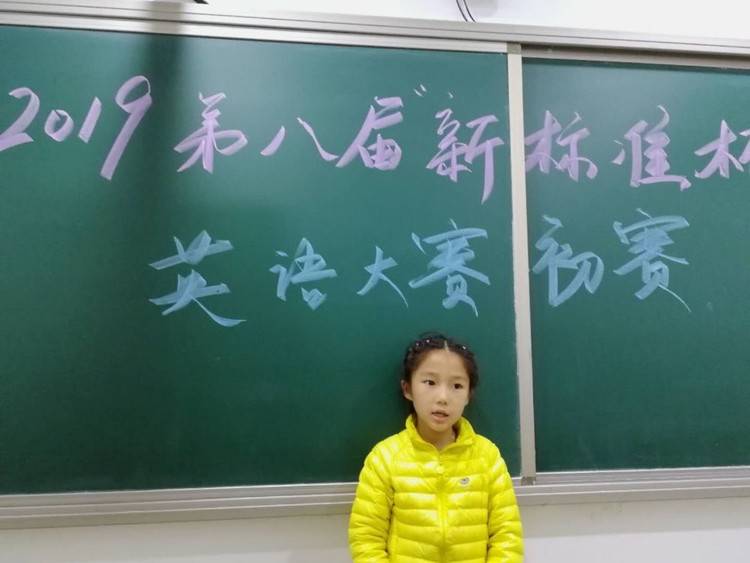 2019第八届"新标准杯"
英语大赛初赛